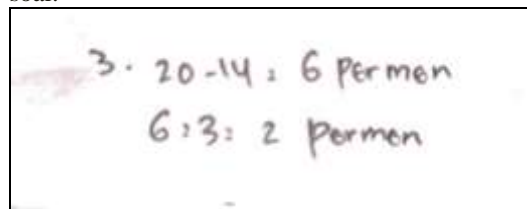 soal.
3. 20-14 : 6 permen
6:3: 2 permen